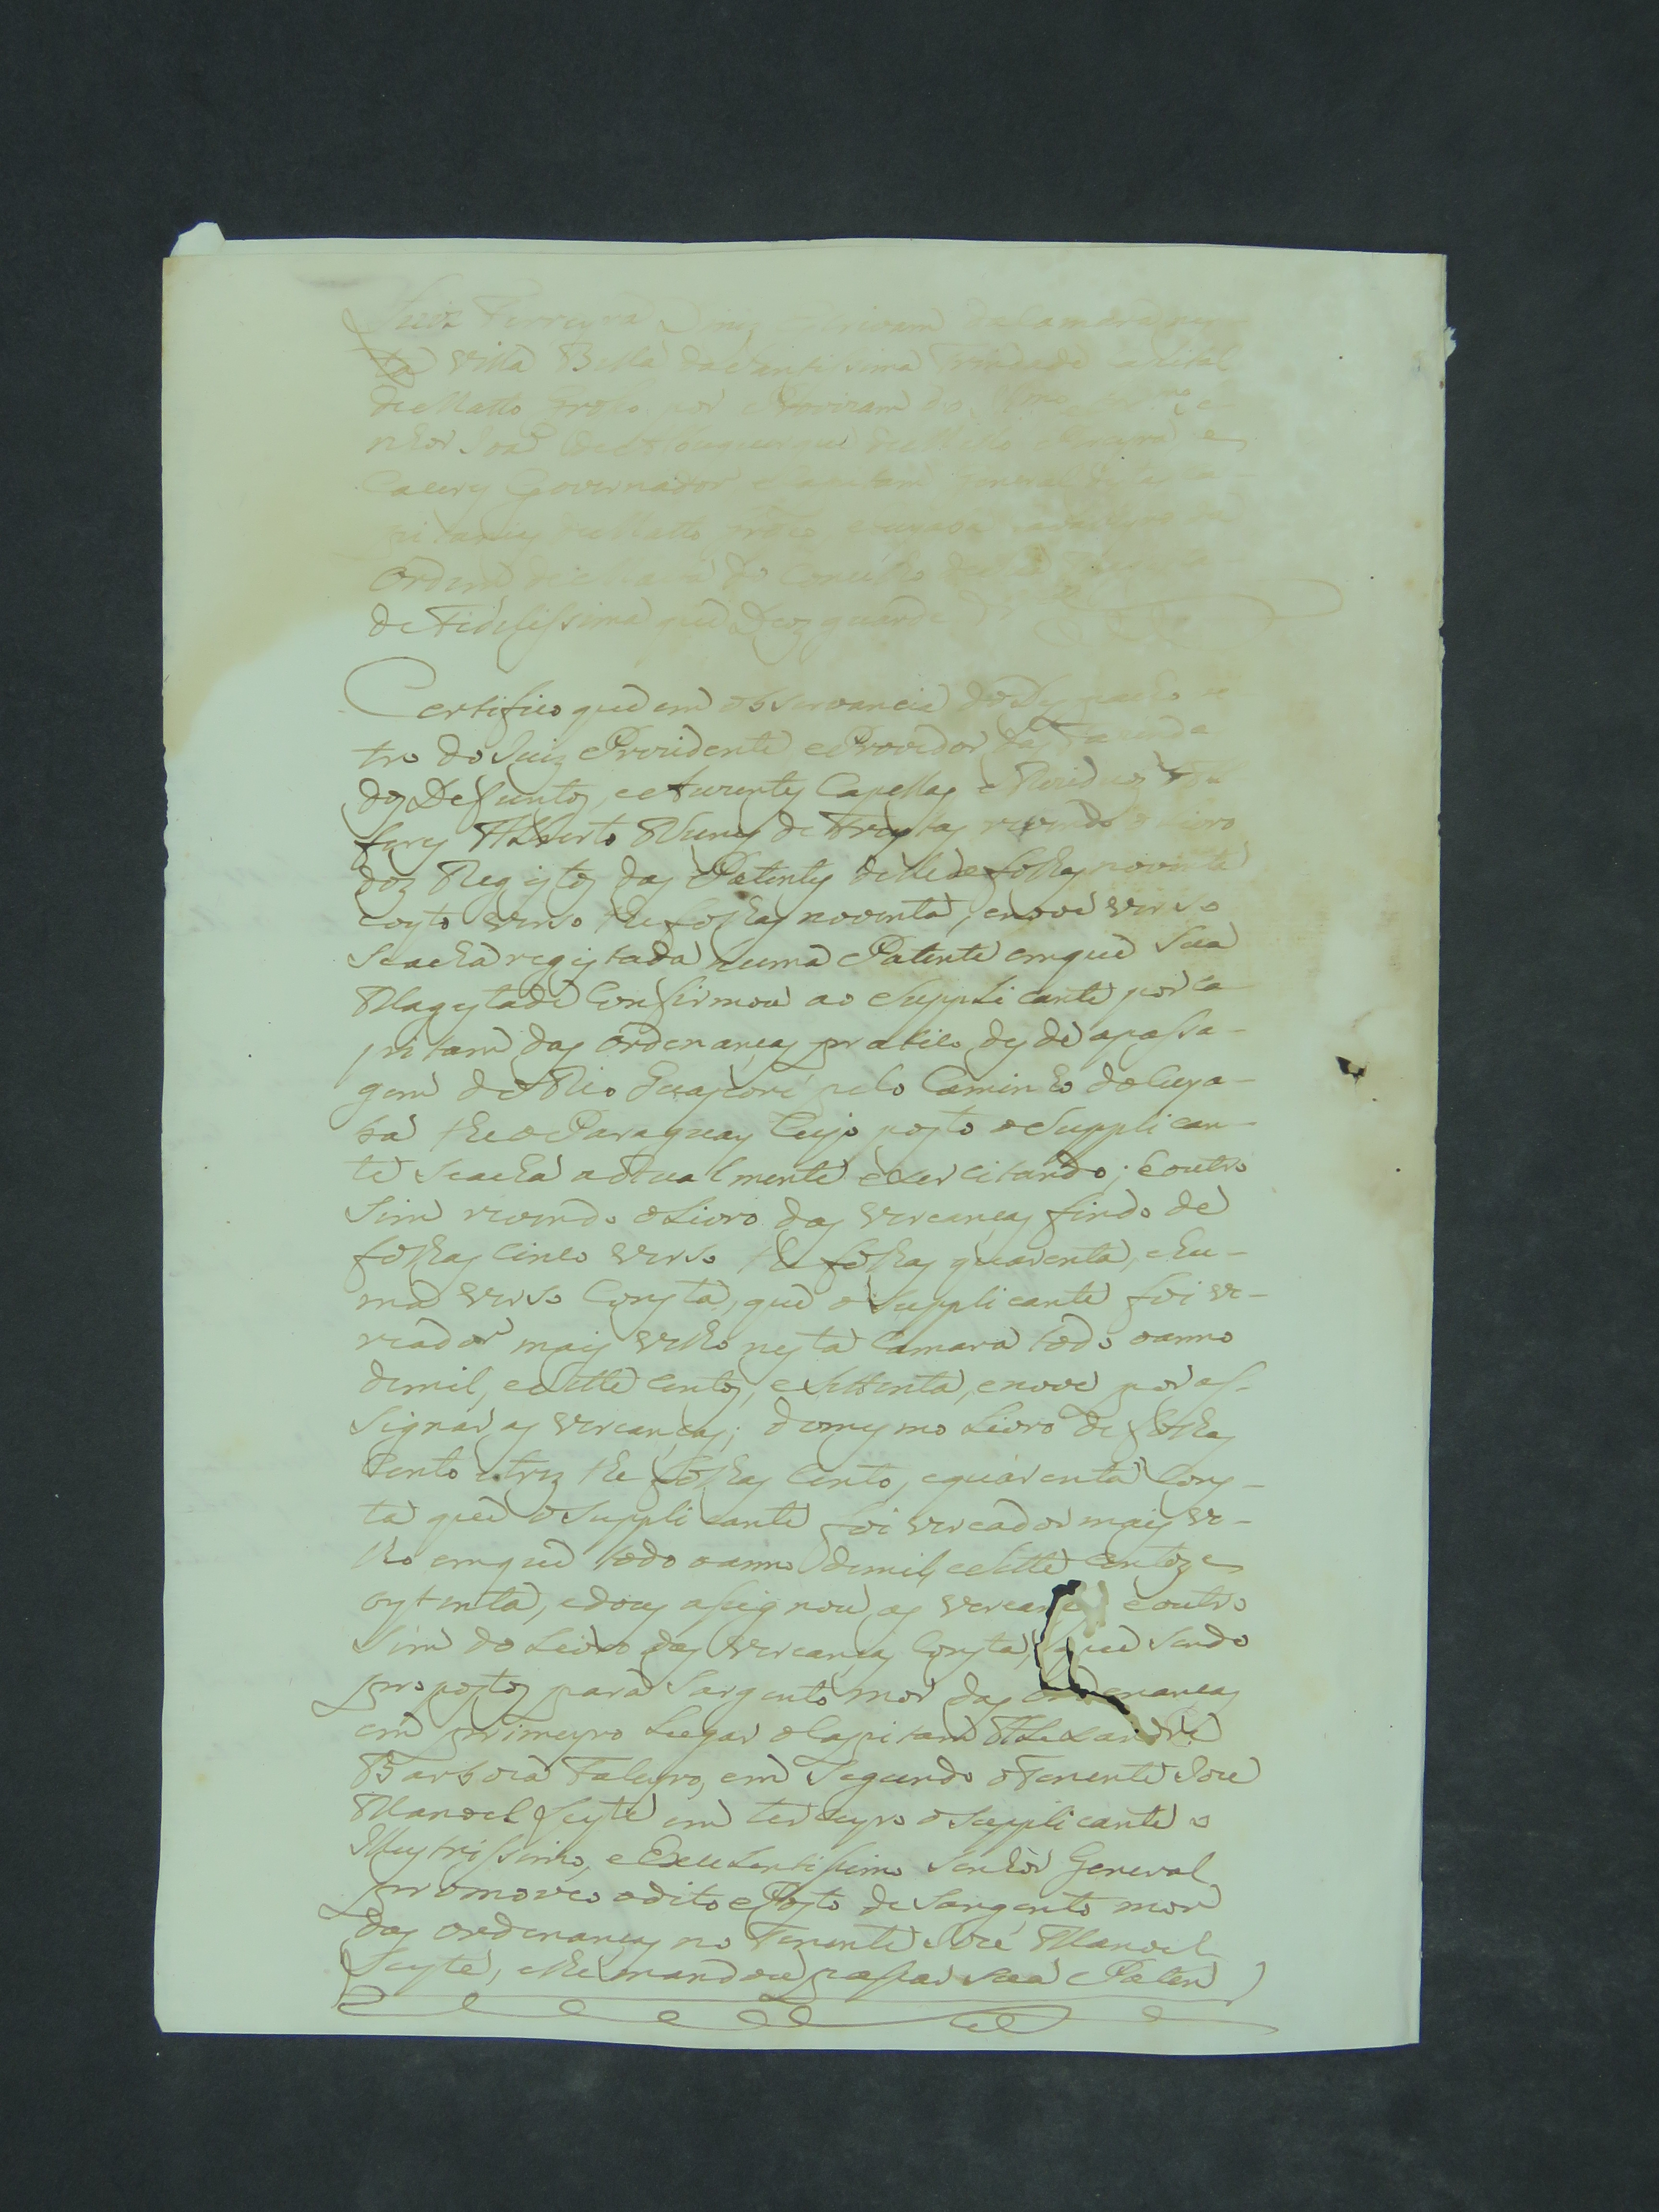 Luiz Ferreira Diniz Escrivam da Camara nes-
ta Villa Bella da Santissima Trindade Capital
de Matto Groso por Provizam do Illmo e Exmo Se-
nhor Joaõ de Albuquerque de Mello Pereyra e
Caceres Governador, e Capitam General destas Ca-
pitanias de Matto Groço, e Cuyaba
Ordem de Malta do Concelho de Sua Magesta-
de Fidelissima que Deoz guarde
Certifico que em observancia do Despacho re-
tro do Juiz Prezidente e Provedor das Fazenda
dos Defuntos, e Auzentes Capellas e Reziduos
Alberto Nunes de Freytas revendo o Livro
dos Registos das Patentes delle de folhas noventa
e oyto verso the folhas noventa, e nove verso
se acha registada huma Patente em que Sua
Magestade Confirmou ao Supplicante por Ca-
pitam das ordenanças desde a passa-
gem do Rio Guaporé pelo Caminho do Cuya-
ba the o Paraguay Cujo posto o Supplican-
te se acha actualmente exercitando; e outro
sim revendo o Livro das vereanças findo de
folhas Cinco verso the folhas quarenta, e hu-
ma verso Consta, que o Supplicante foi ve-
reador mais velho nesta Camara todo o anno
de mil, e sette centos, e settenta, e nove por as-
signar as vereanças; do mesmo Livro de folhas
Cento e tres the folhas Cento, e quarenta Cons-
ta que o Supplicante foi vereador mais ve-
lho em que todo o anno de mil e sette centos e
oytenta, e dous asignou as vereanças e outro
sim do Livro das vereanças Consta, que sendo
propostos para Sargento mor das ordenanças
em primeyro Lugar o Capitam Alexandre
Barboza Faleyro, em Segundo o Tenente Joze
Manoel Seyte em terceyro o Supplicante o
Illustrissimo, e Excelentissimo Senhor General
promoveo o dito Posto de Sargento mor
das ordenanças no Tenente José Manoel
Seyte, e lhe mandou passar sua Paten